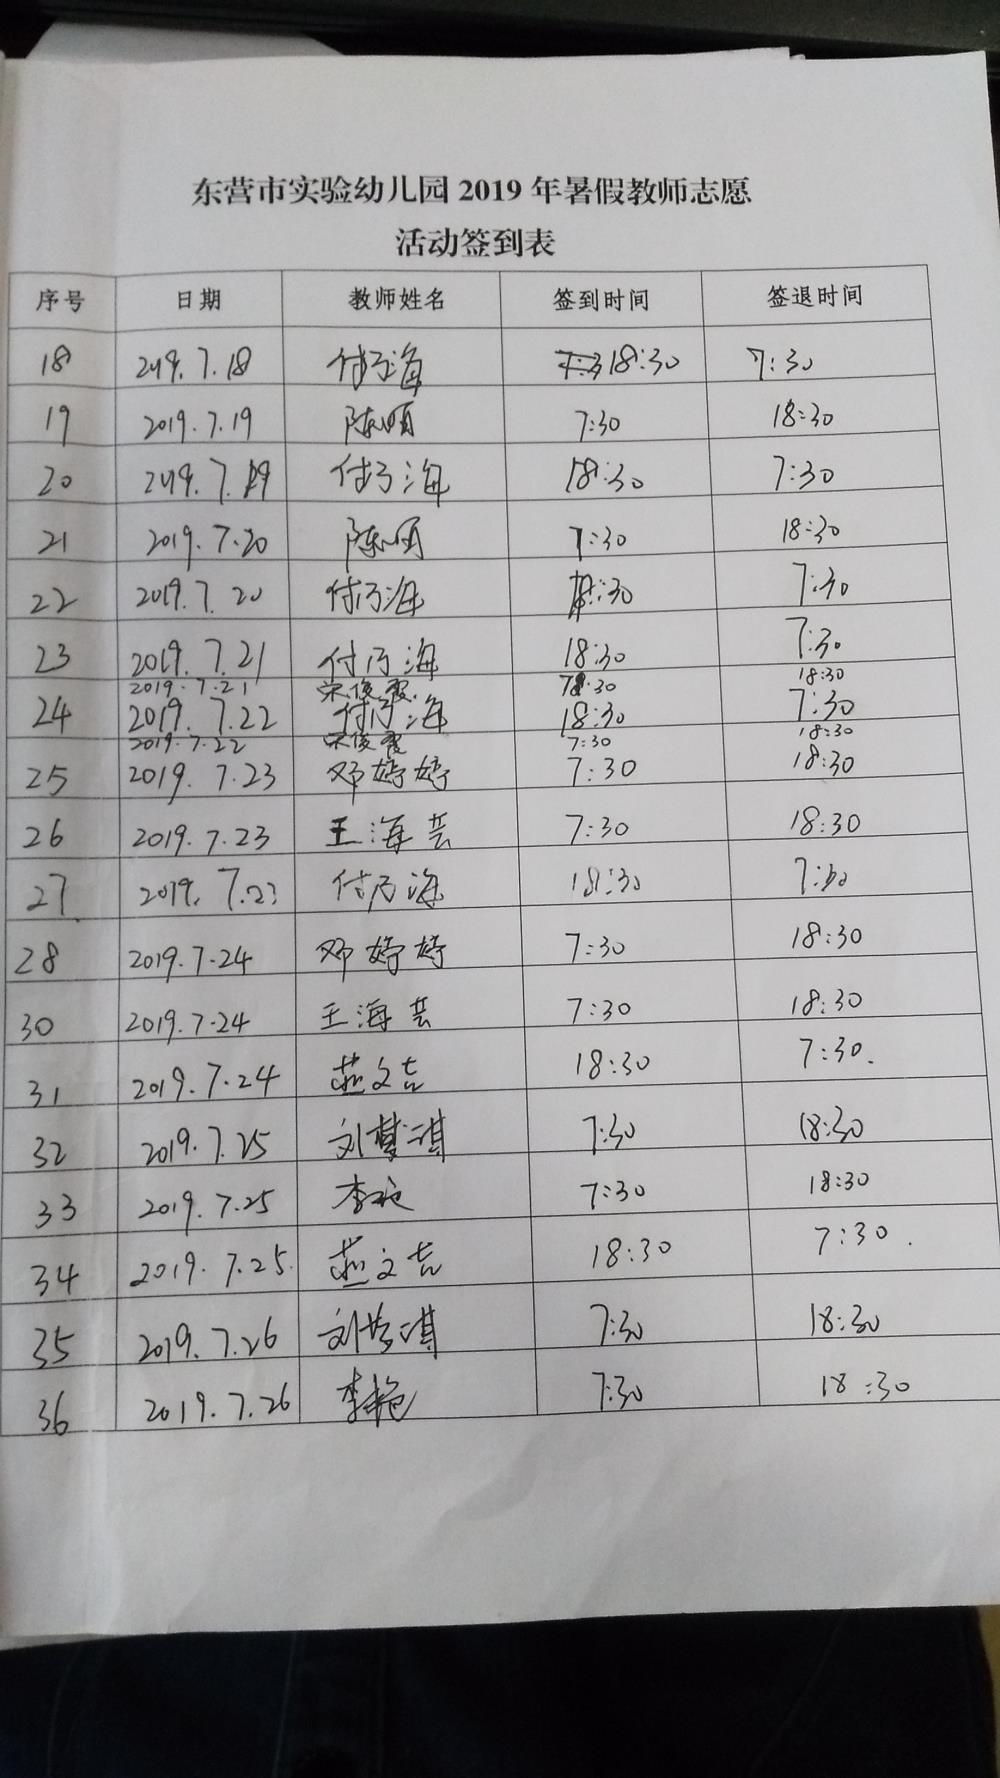 东营市实验幼儿园 2019 年暑假教师志愿
活动签到表
序号 日期 教师姓名 签到时间 签退时间
18 2019.7.18 付乃海 18:30 7:30
19 2019.7.19 陈頔 7:30 18:30
20 2019.7.19 付乃海 18:30 7:30
21 2019.7.20 陈頔 7:30 18:30
22 2019.7.20 付乃海 18:30 7:30
23 2019.7.21 付乃海 18:30 7:30
2019.7.21 宋俊霞 7:30 18:30
24 2019.7.22 付乃海 18:30 7:30
2019.7.22 宋俊霞 7:30 18:30
25 2019.7.23 邓婷婷 7:30 18:30
26 2019.7.23 王海芸 7:30 18:30
27 2019.7.23 付乃海 18:30 7:30
28 2019.7.24 邓婷婷 7:30 18:30
30 2019.7.24 王海芸 7:30 18:30
31 2019.7.24 燕文吉 18:30 7:30.
32 2019.7.25 刘梦淇 7:30 18:30
33 2019.7.25 李艳 7:30 18:30
34 2019.7.25. 燕文吉 18:30 7:30.
35 2019.7.26 刘梦淇 7:30 18:30
36 2019.7.26 李艳 7:30 18:30